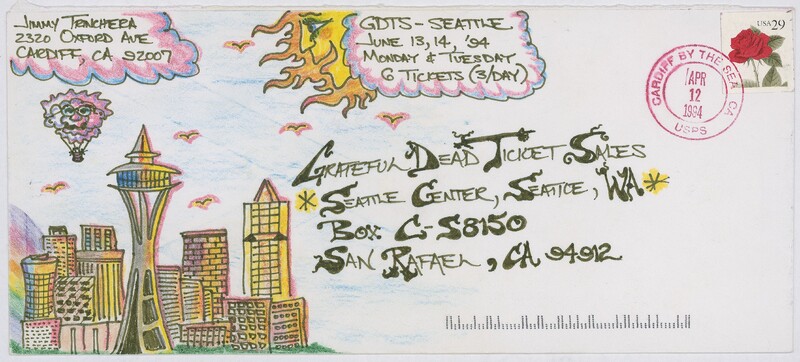 Jimmy Trnchera
2320 Oxford Ave
Cardiff, CA 92007
GDTS - Seattle
June 13, 14, '94
Monday & Tuesday
6 Tickets (3/day)
USA 29
CARDIFF BY THE SEA CA
APR
12
1994
USPS
Grateful Dead Ticket Sales
Seattle Center, Seattle, WA
Box C-S8150
San Rafael, CA 94912